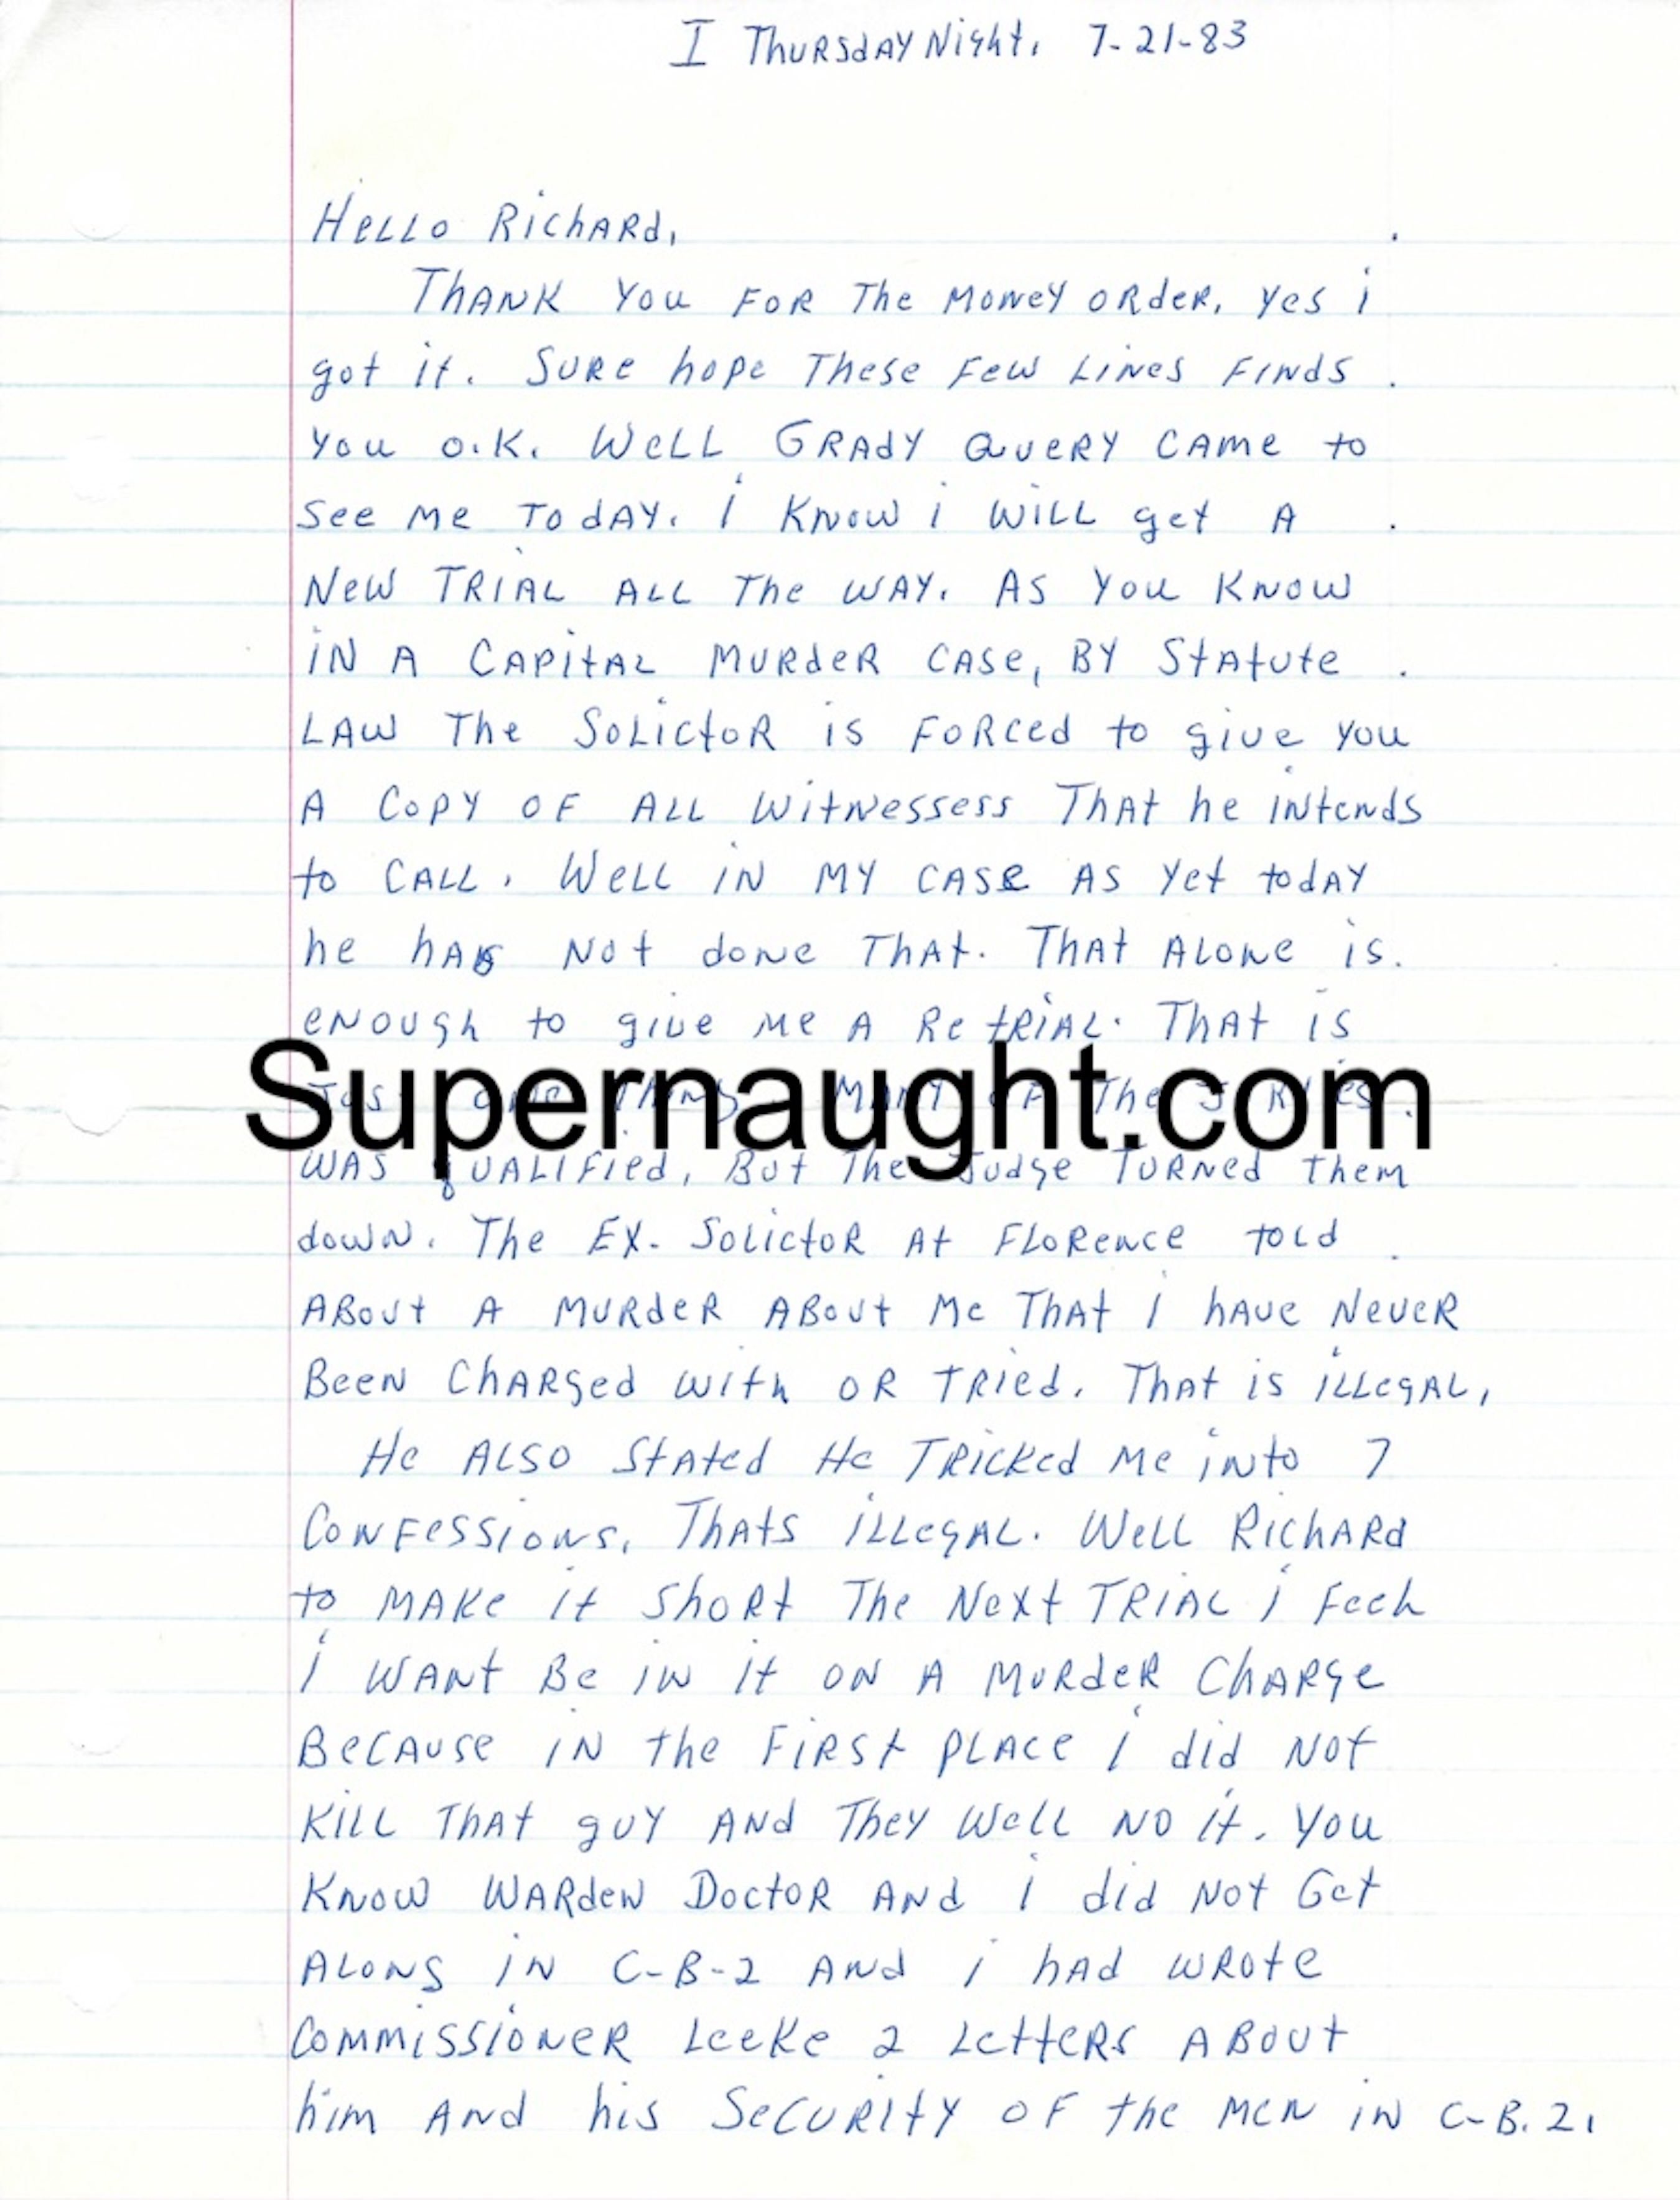 I THURSdAY Night. 7-21-83
HELLO RichARd,
THANK YOU FOR The MONEY ORdER. YES i
got it. SURE hope These FEW LINES FINDS
YOU O.K. WELL GRAdY QUERY CAME to
SEE ME TOdAY. I KNOW i WILL get A
NEW TRIAL ALL The WAY. AS YOU KNOW
IN A CAPITAL MURdER CASE, BY StAtute
LAW The SOLictOR is FORced to give YOU
A COPY OF ALL WitNESSESS THAt he iNtENds
to CALL. WELL IN MY CASE AS YEt todAY
he hAS Not done THAt. THAt ALONE is.
ENOUgh to give ME A RE tRIAL. THAt is
Supernaught.com
MANY OF The
WAS QUALIFIEd, But The Judge TURNEd them
dOWN. The EX- SolictOR At FLORENCE TOLd
ABOUt A MURdER ABOUt ME THAt I hAVE NEVER
BEEN ChARgEd With OR TRIEd. THAt is iLLEgAL,
HE ALSO StAtEd HE TRICKEd ME iNto 7
CONFESSIONS. THAts iLLEgAL. WELL RichARd
to MAKE it ShORt The NEXt TRIAL i FEEL
i WANt BE IN it ON A MURdER ChARgE
BECAUSE IN the FIRSt PLACE i did NOt
KILL THAt gUY ANd THEY WELL NO it. YOU
KNOW WARdEN DoctOR ANd i did NOt GEt
ALONg IN C-B-2 ANd i hAd WROtE
COMMISSIONER LEEKE 2 LEttERS ABOUt
him ANd his SECURItY OF the MEN IN C-B.2.